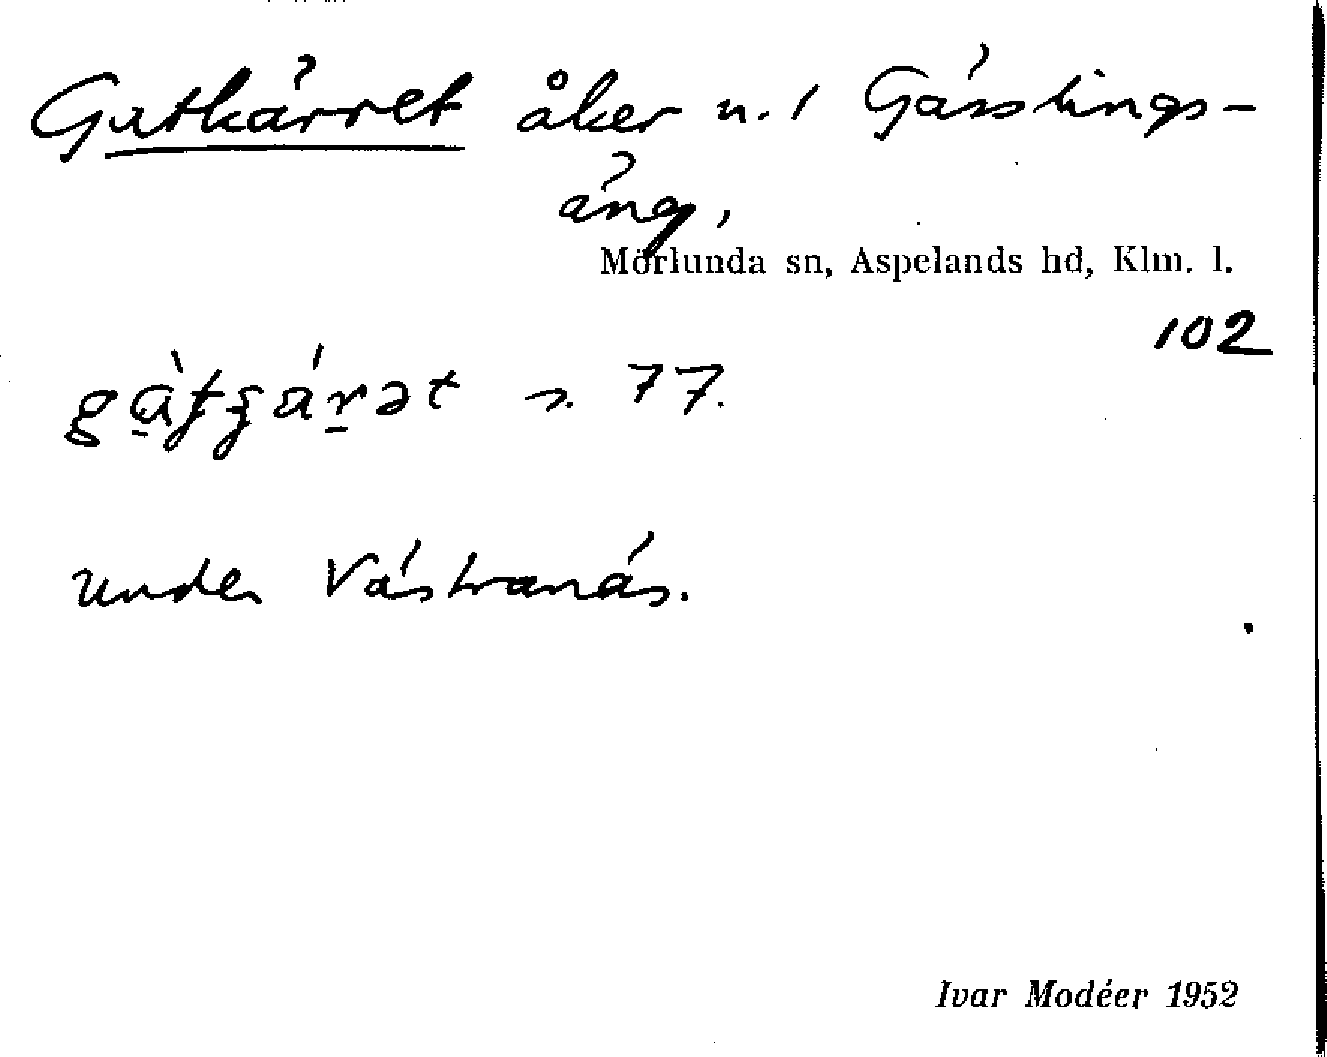 Gatkärret åker n. 1 Gässlings-
äng,
Mörlunda sn, Aspelands hd, Klm. l.
102
s. 77.
under Västranäs.
Ivar Modéer 1952